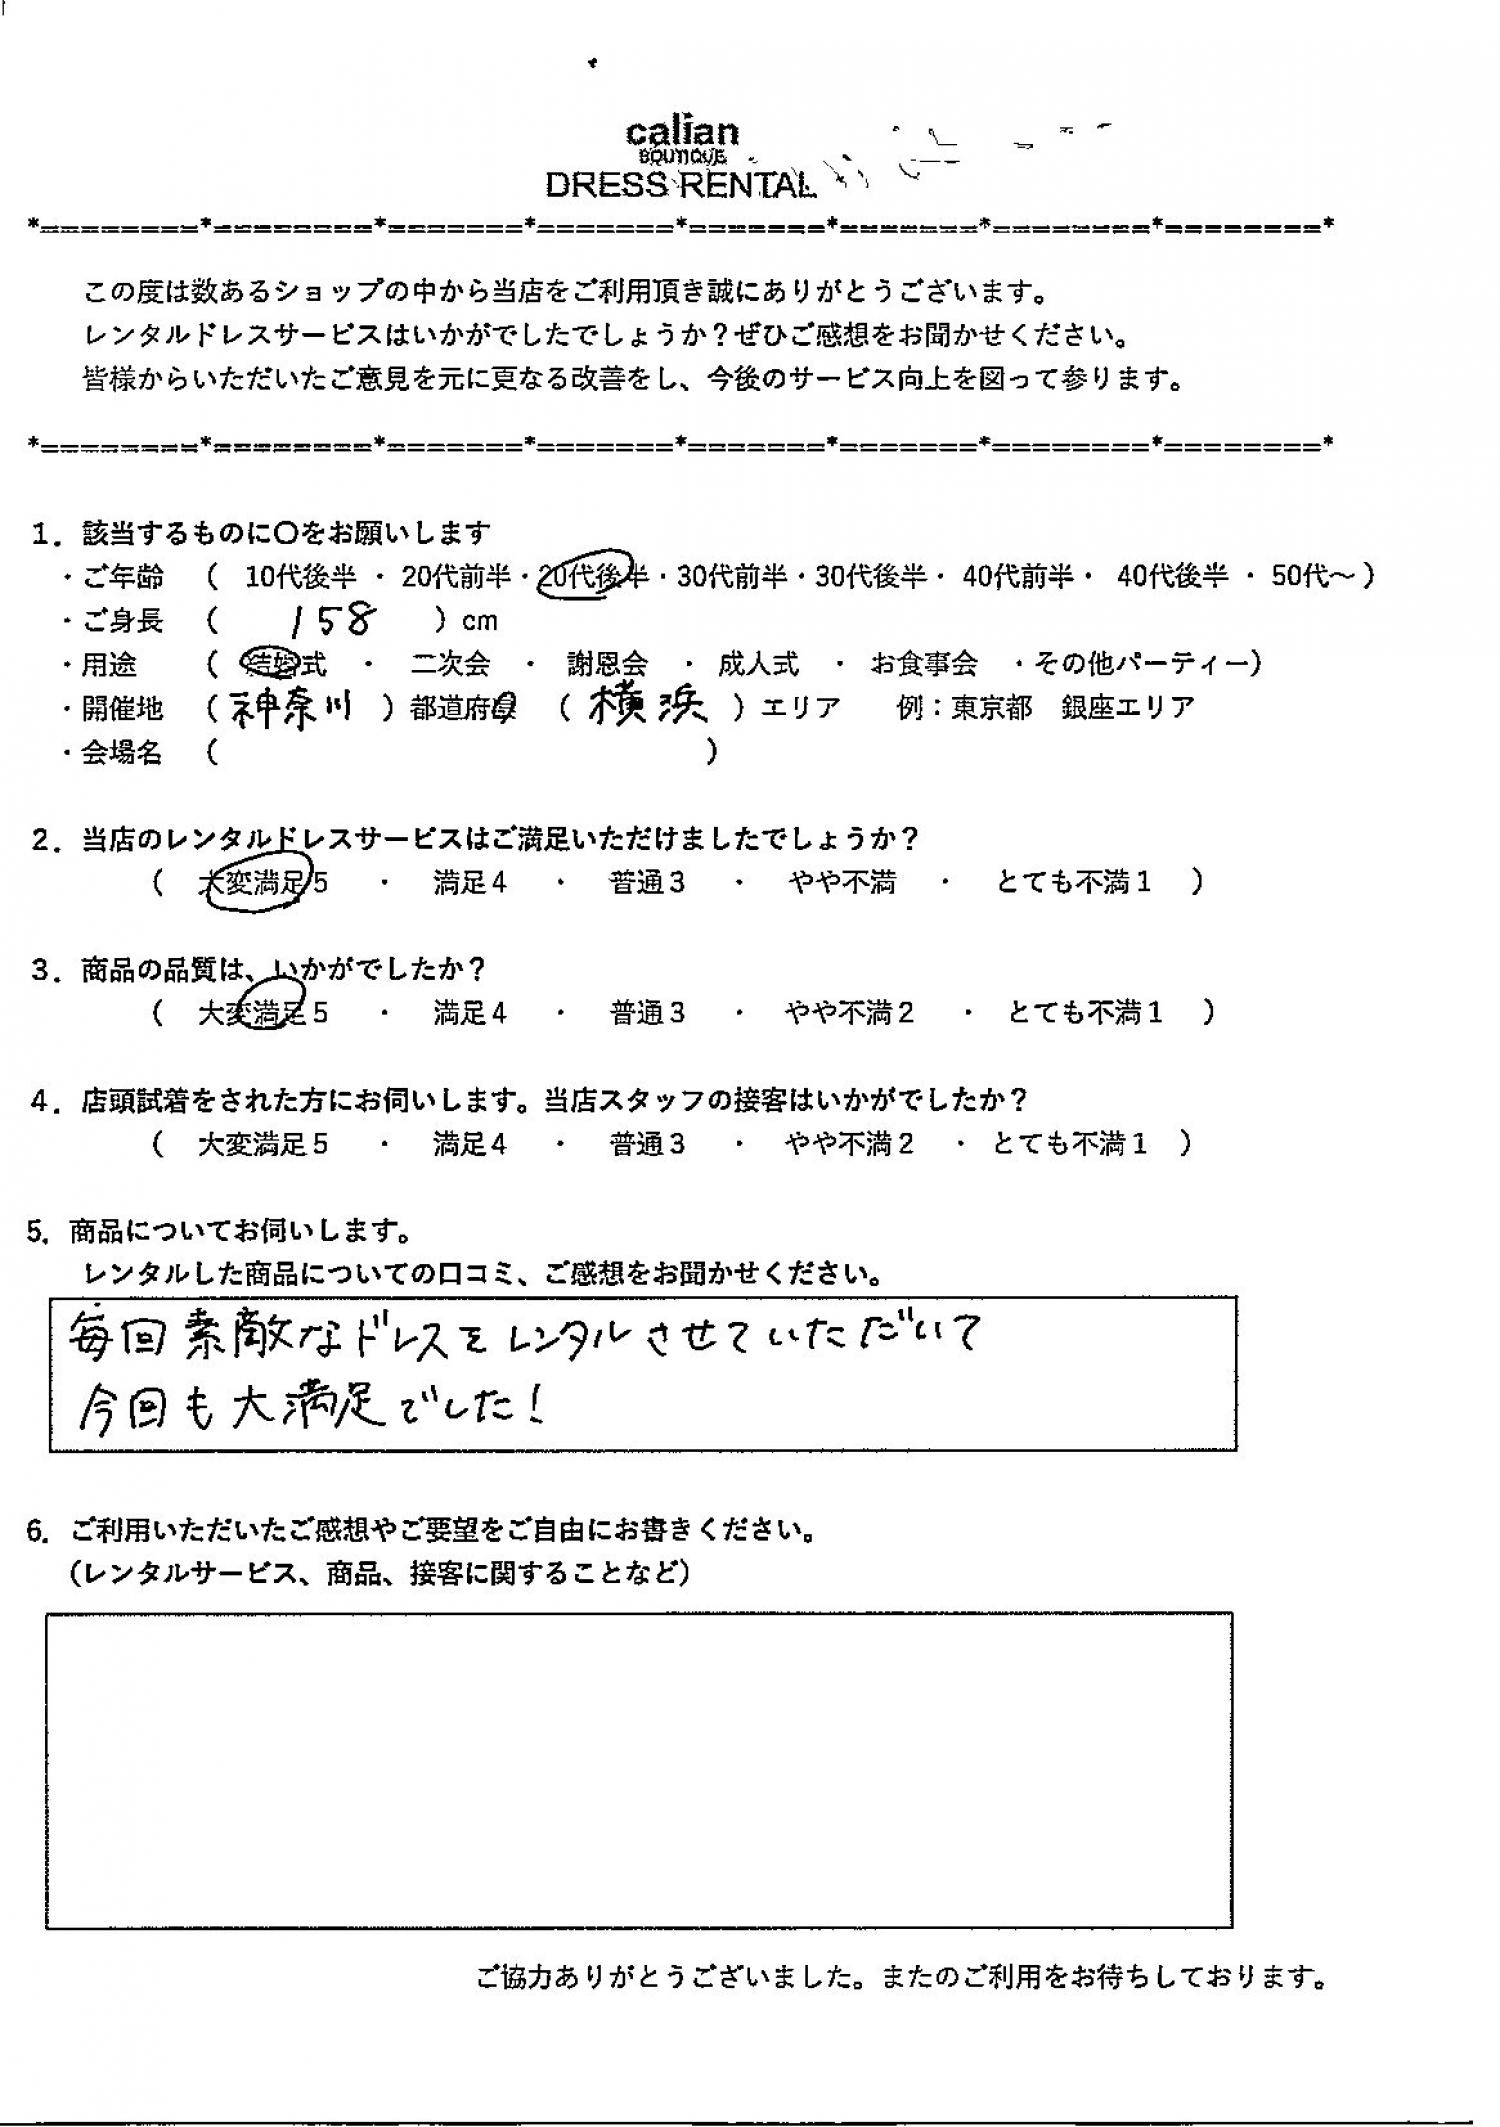 calian
BOUTIQUE
DRESS RENTAL
*========*========*=======*=======*=======*=======*========*========*
この度は数あるショップの中から当店をご利用頂き誠にありがとうございます。
レンタルドレスサービスはいかがでしたでしょうか？ぜひご感想をお聞かせください。
皆様からいただいたご意見を元に更なる改善をし、今後のサービス向上を図って参ります。
*========*========*=======*=======*=======*=======*========*========*
1．該当するものに〇をお願いします
・ご年齢 （ 10代後半 ・ 20代前半・20代後半・30代前半・30代後半・ 40代前半・ 40代後半 ・ 50代～ ）
・ご身長 （ 158 ）cm
・用途 （ 結婚式 ・ 二次会 ・ 謝恩会 ・ 成人式 ・ お食事会 ・その他パーティー）
・開催地 （ 神奈川 ）都道府県 （ 横浜 ）エリア 例：東京都 銀座エリア
・会場名 （ ）
2．当店のレンタルドレスサービスはご満足いただけましたでしょうか？
（ 大変満足5 ・ 満足4 ・ 普通3 ・ やや不満 ・ とても不満1 ）
3．商品の品質は、いかがでしたか？
（ 大変満足5 ・ 満足4 ・ 普通3 ・ やや不満2 ・ とても不満1 ）
4．店頭試着をされた方にお伺いします。当店スタッフの接客はいかがでしたか？
（ 大変満足5 ・ 満足4 ・ 普通3 ・ やや不満2 ・ とても不満1 ）
5．商品についてお伺いします。
レンタルした商品についての口コミ、ご感想をお聞かせください。
毎回素敵なドレスをレンタルさせていただいて
今回も大満足でした！
6．ご利用いただいたご感想やご要望をご自由にお書きください。
（レンタルサービス、商品、接客に関することなど）
ご協力ありがとうございました。またのご利用をお待ちしております。